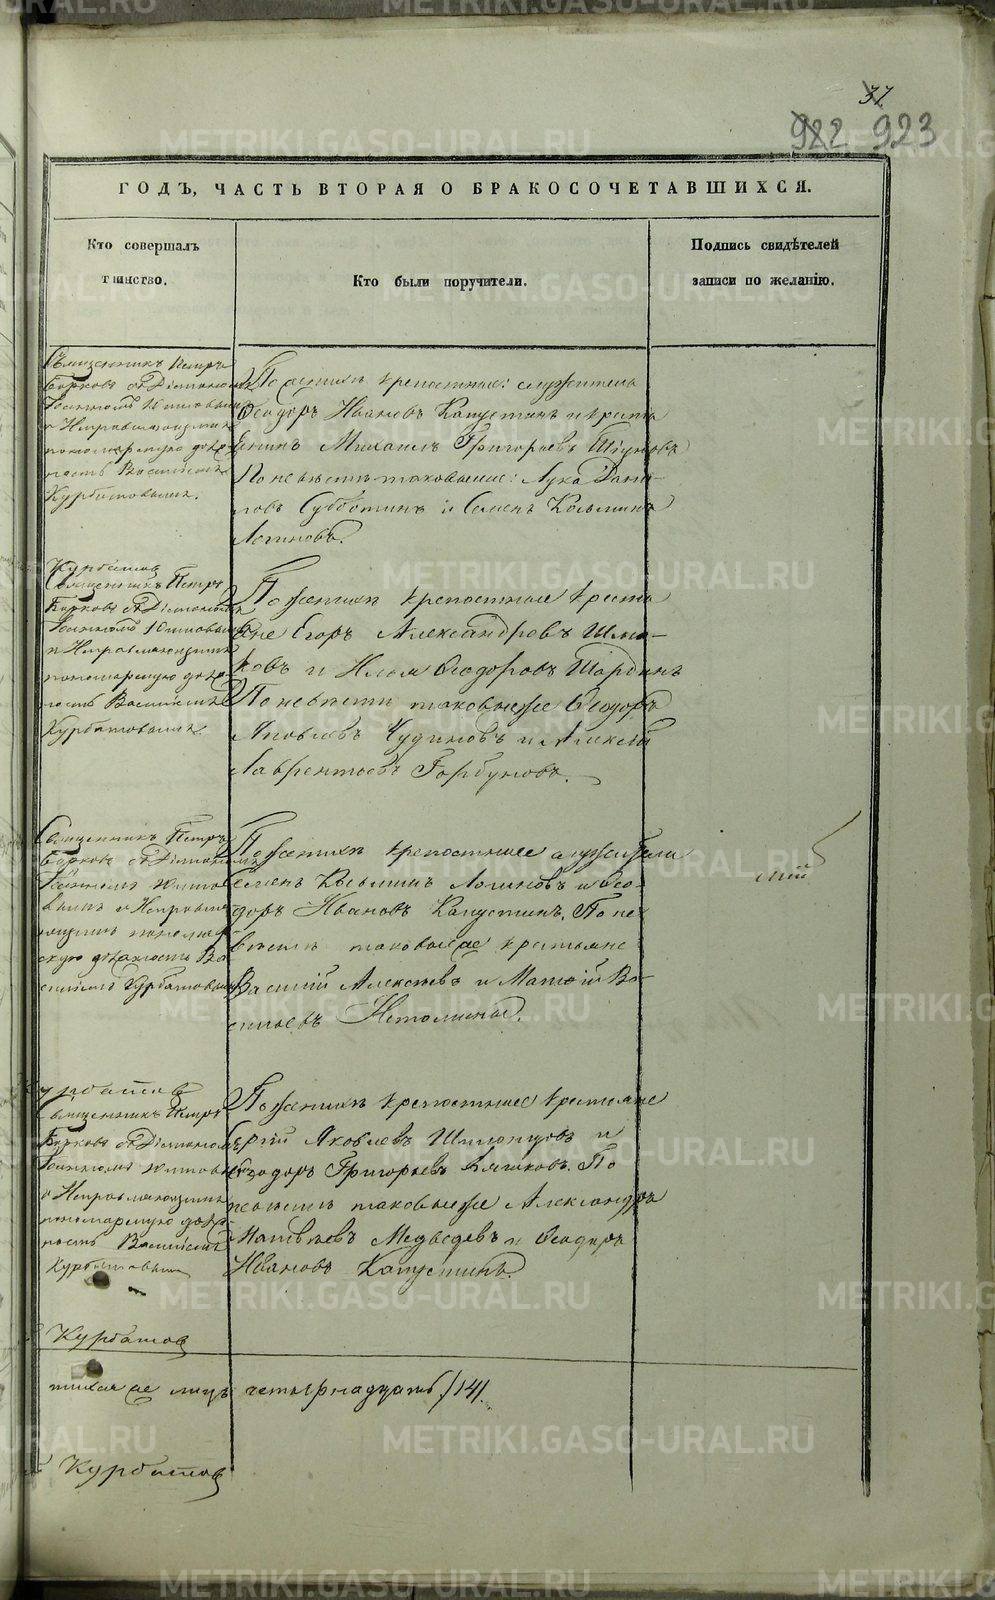 37
922 923
ГОДЪ, ЧАСТЬ ВТОРАЯ О БРАКОСОЧЕТАВШИХСЯ.
Кто совершалъ
таинство.
Кто были поручители.
Подпись свидѣтелей
записи по желанію.
Священникъ Петръ
Борковъ съ Діакономъ
и Исправляющимъ
пономарскую долж
ность Васильемъ
Курбатовымъ.
По женихѣ крепостные: служитель
Ѳеодоръ Ивановъ Капустинъ и кресть
янинъ Михаилъ Григорьевъ
По невѣстѣ таковыеже: Лука Дани-
ловъ Субботинъ и Семенъ Косьминъ
Логиновъ.
Курбатовъ
Священникъ Петръ
Борковъ съ Діакономъ
и Исправляющимъ
пономарскую долж
ность Васильемъ
Курбатовымъ
По женихѣ крепостные кресть
яне Егоръ Александровъ
ковъ и Илья Ѳеодоровъ
По невѣсте таковыеже Ѳеодоръ
Яковлевъ Чудиновъ и Алексѣй
Лаврентьевъ Горбуновъ.
Священникъ Петръ
Борковъ съ Діакономъ
и Исправля
ющимъ пономар
скую должность Ва
сильемъ Курбатовымъ
По женихѣ крепостные служители
Семенъ Косьминъ Логиновъ и Ѳео-
доръ Ивановъ Капустинъ. По не
вѣсте таковыеже крестьяне
Василій Алексѣевъ и Матвѣй Ва-
сильевъ
Курбатовъ
Священникъ Петръ
Борковъ съ Діакономъ
и Исправляющимъ
пономарскую долж
ность Васильемъ
Курбатовымъ
По женихѣ крепостные крестьяне
Яковлевъ и
Ѳеодоръ Григорьевъ По
невѣсте таковыеже Александръ
Матвѣевъ Медведевъ и Ѳеодоръ
Ивановъ Капустинъ.
Курбатовъ
лицъ четырнадцать /14/.
Курбатовъ
METRIKI.GASO-URAL.RU